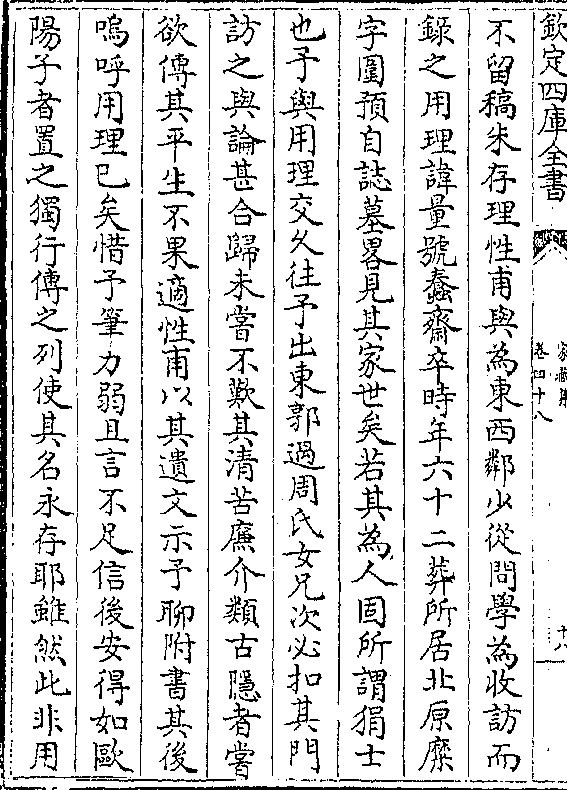 欽定四庫全書
家藏集
卷四十八
十八
不留稿朱存理性甫與為東西鄰少從問學為收訪而
錄之用理諱量號蠢齋卒時年六十二葬所居北原糜
字圍預自誌墓畧見其家世矣若其為人固所謂狷士
也予與用理交乆往予出東郭過周氏女兄次必扣其門
訪之與論甚合歸未嘗不歎其清苦廉介類古隱者嘗
欲傳其平生不果適性甫以其遺文示予聊附書其後
嗚呼用理已矣惜予筆力弱且言不足信後安得如歐
陽子者置之獨行傳之列使其名永存耶雖然此非用